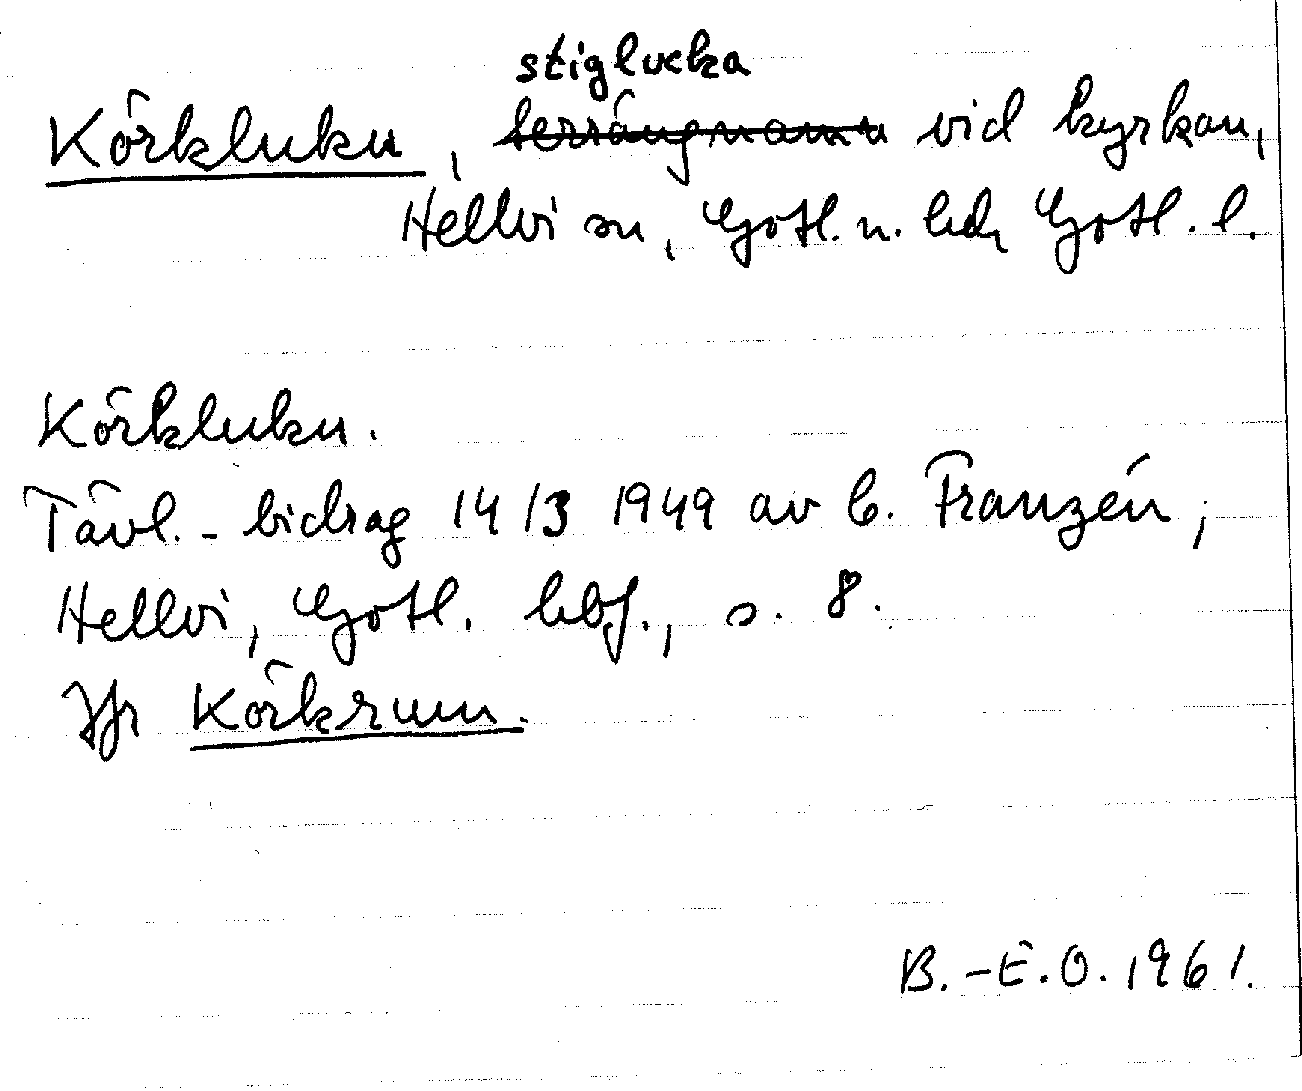 stiglucka
Körkluku, terrängnamn vid kyrkan,
Hellvi sn, Gotl. n. hd, Gotl. l.
Körkluku.
Tävl.-bidrag 14/3 1949 av C. Franzén,
Hellvi, Gotl. hbf., s. 8.
Jfr Körkrum.
B.-E.O. 1961.